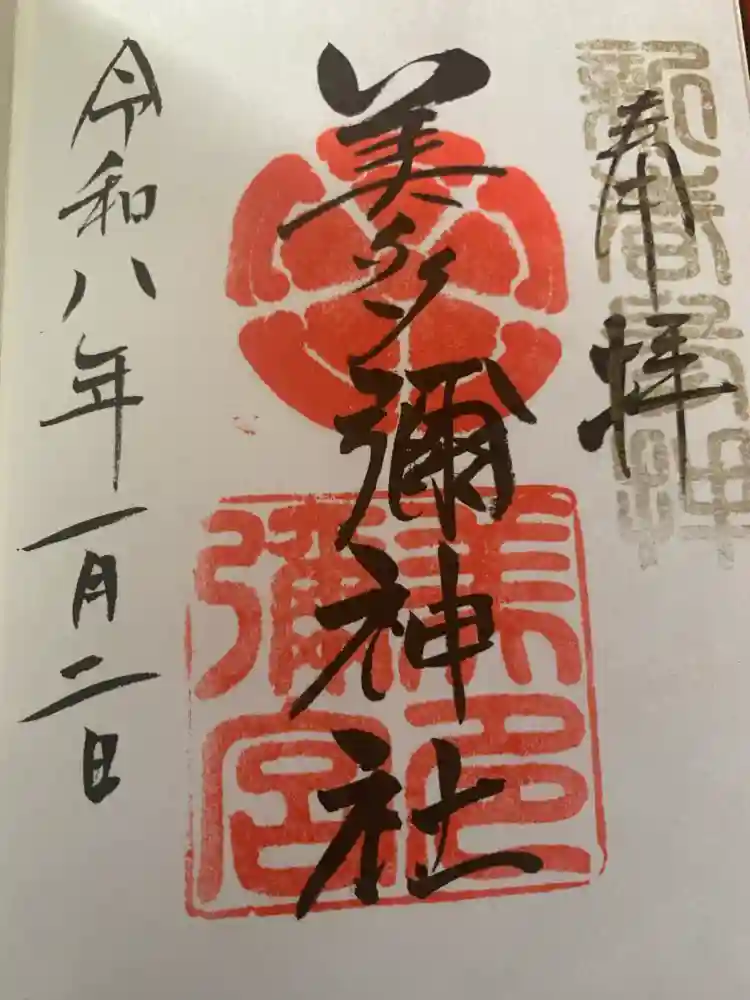 奉拝
美多彌神社
令和八年一月二日
美多
彌宮